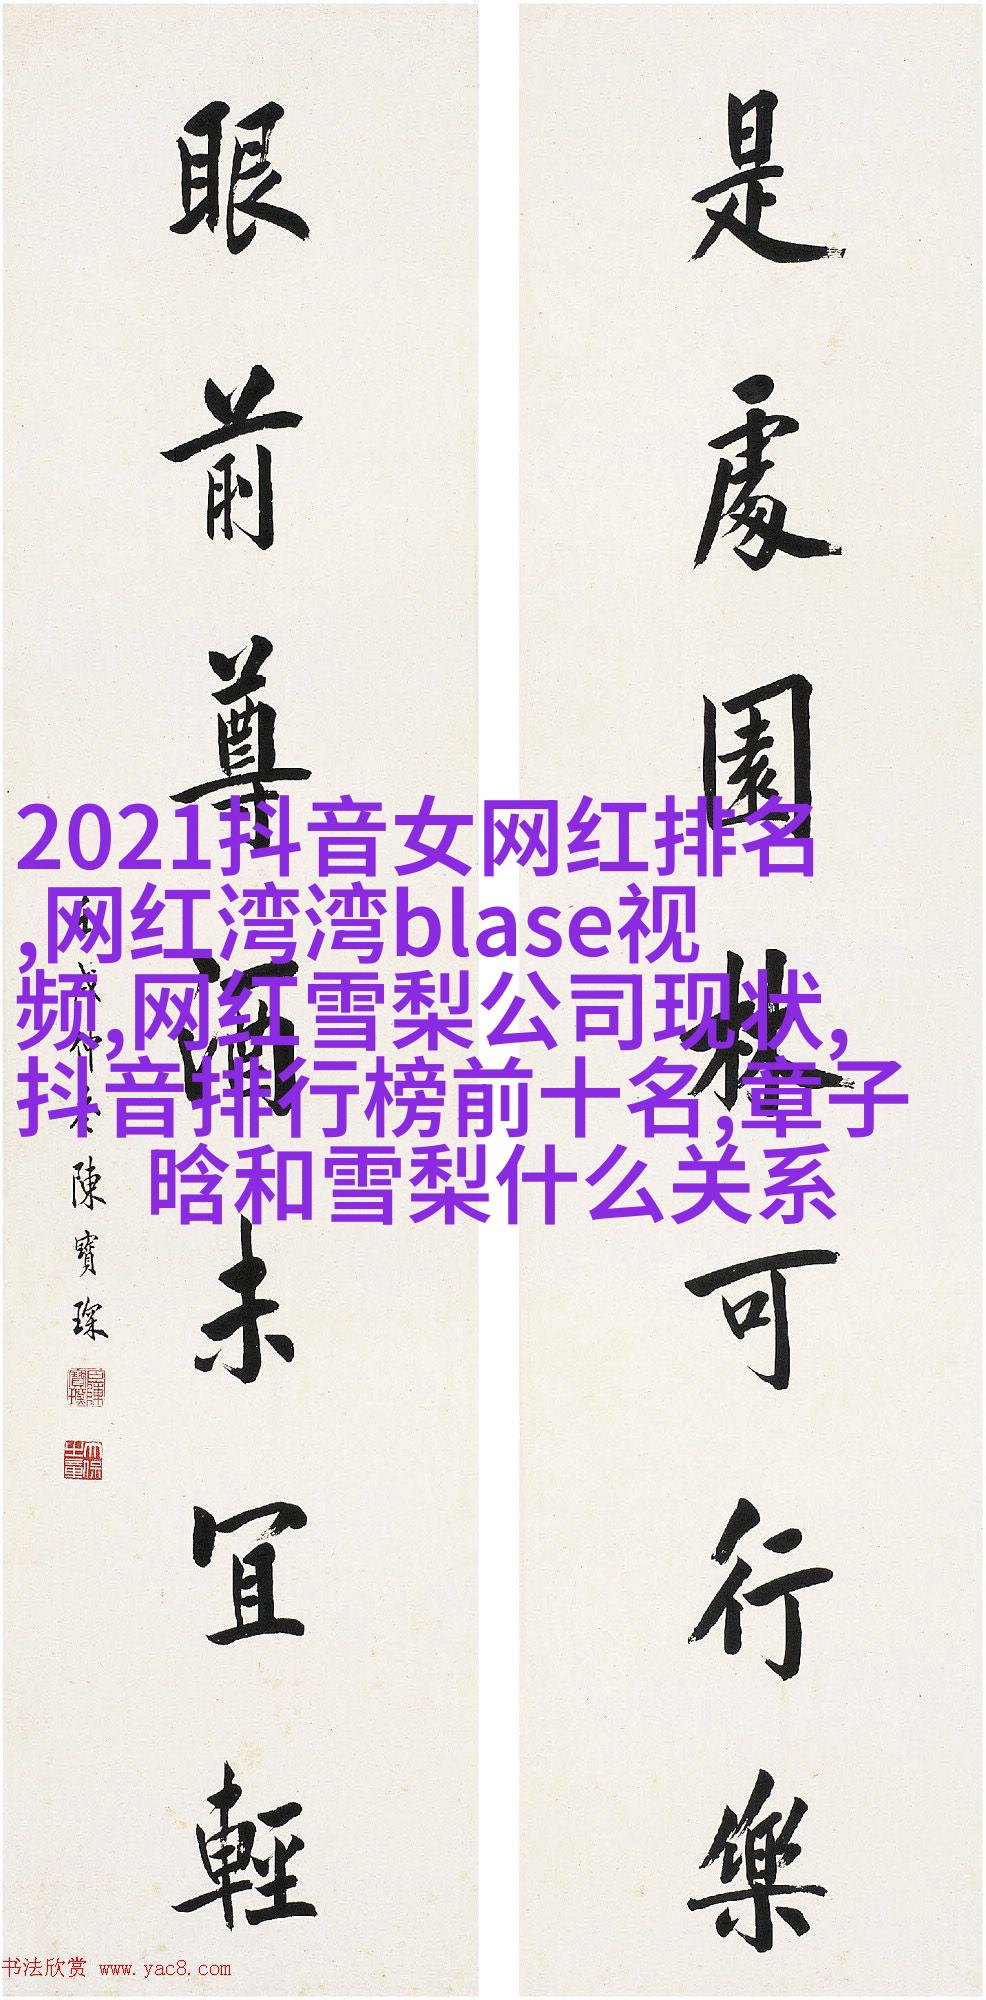 是處園林可行樂
眼前尊酒未宜輕
陳寶琛
2021抖音女网红排名
,网红湾湾blase视
频,网红雪梨公司现状,
抖音排行榜前十名,章子
晗和雪梨什么关系
书法欣赏 www.yac8.com